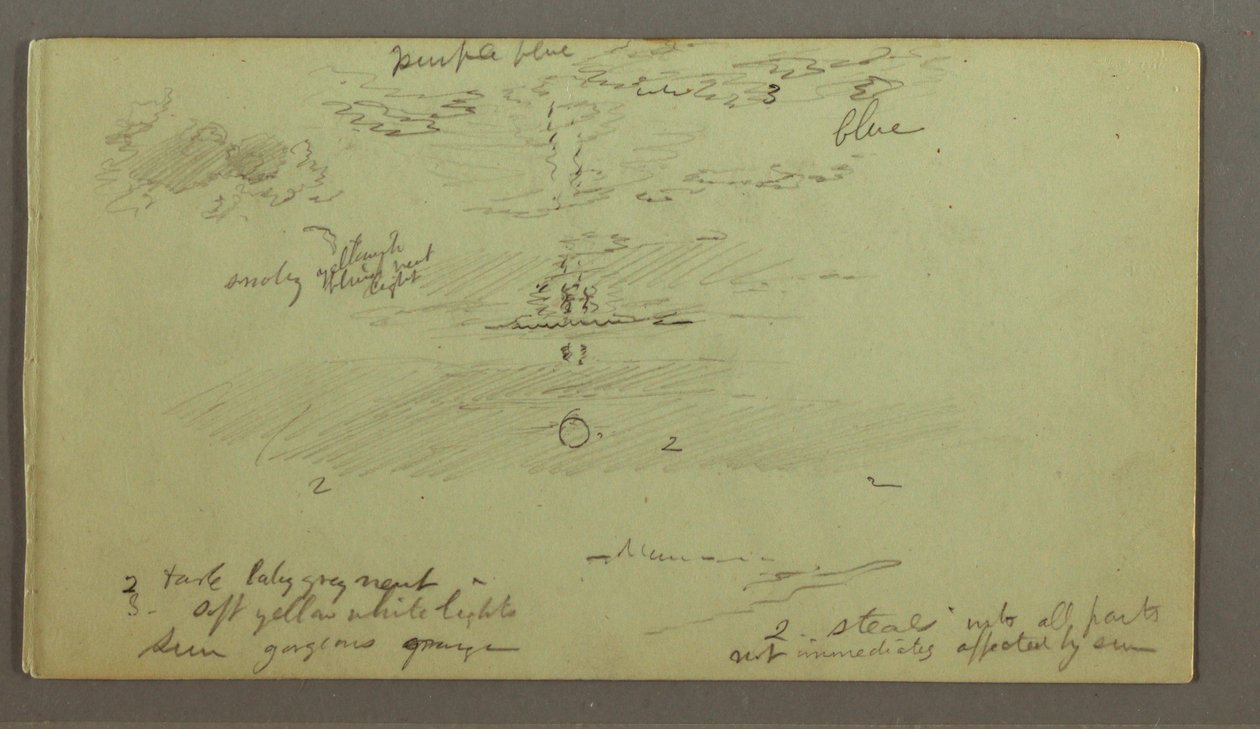 purple blue
3
blue
smoky yellowish
neut
light
2
2
2
2 dark grey neut
3 - soft yellow white lights
sun gorgeous orange
2 steals into all parts
not immediately affected by sun